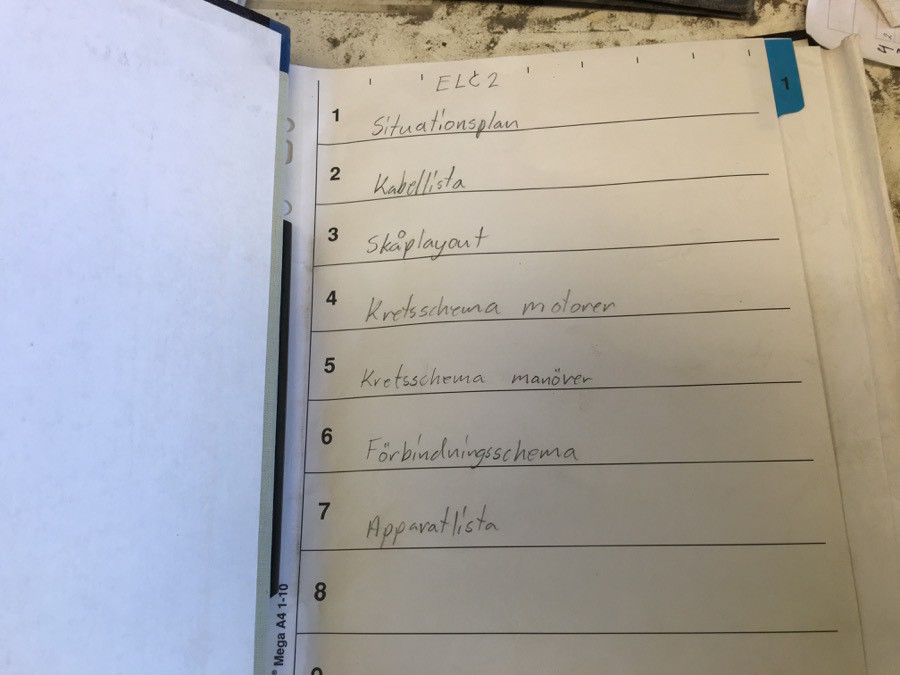 ELC 2
1
1 Situationsplan
2 Kabellista
3 Skåplayout
4 Kretsschema motorer
5 Kretsschema manöver
6 Förbindningsschema
7 Apparatlista
8
® Mega A4 1-10